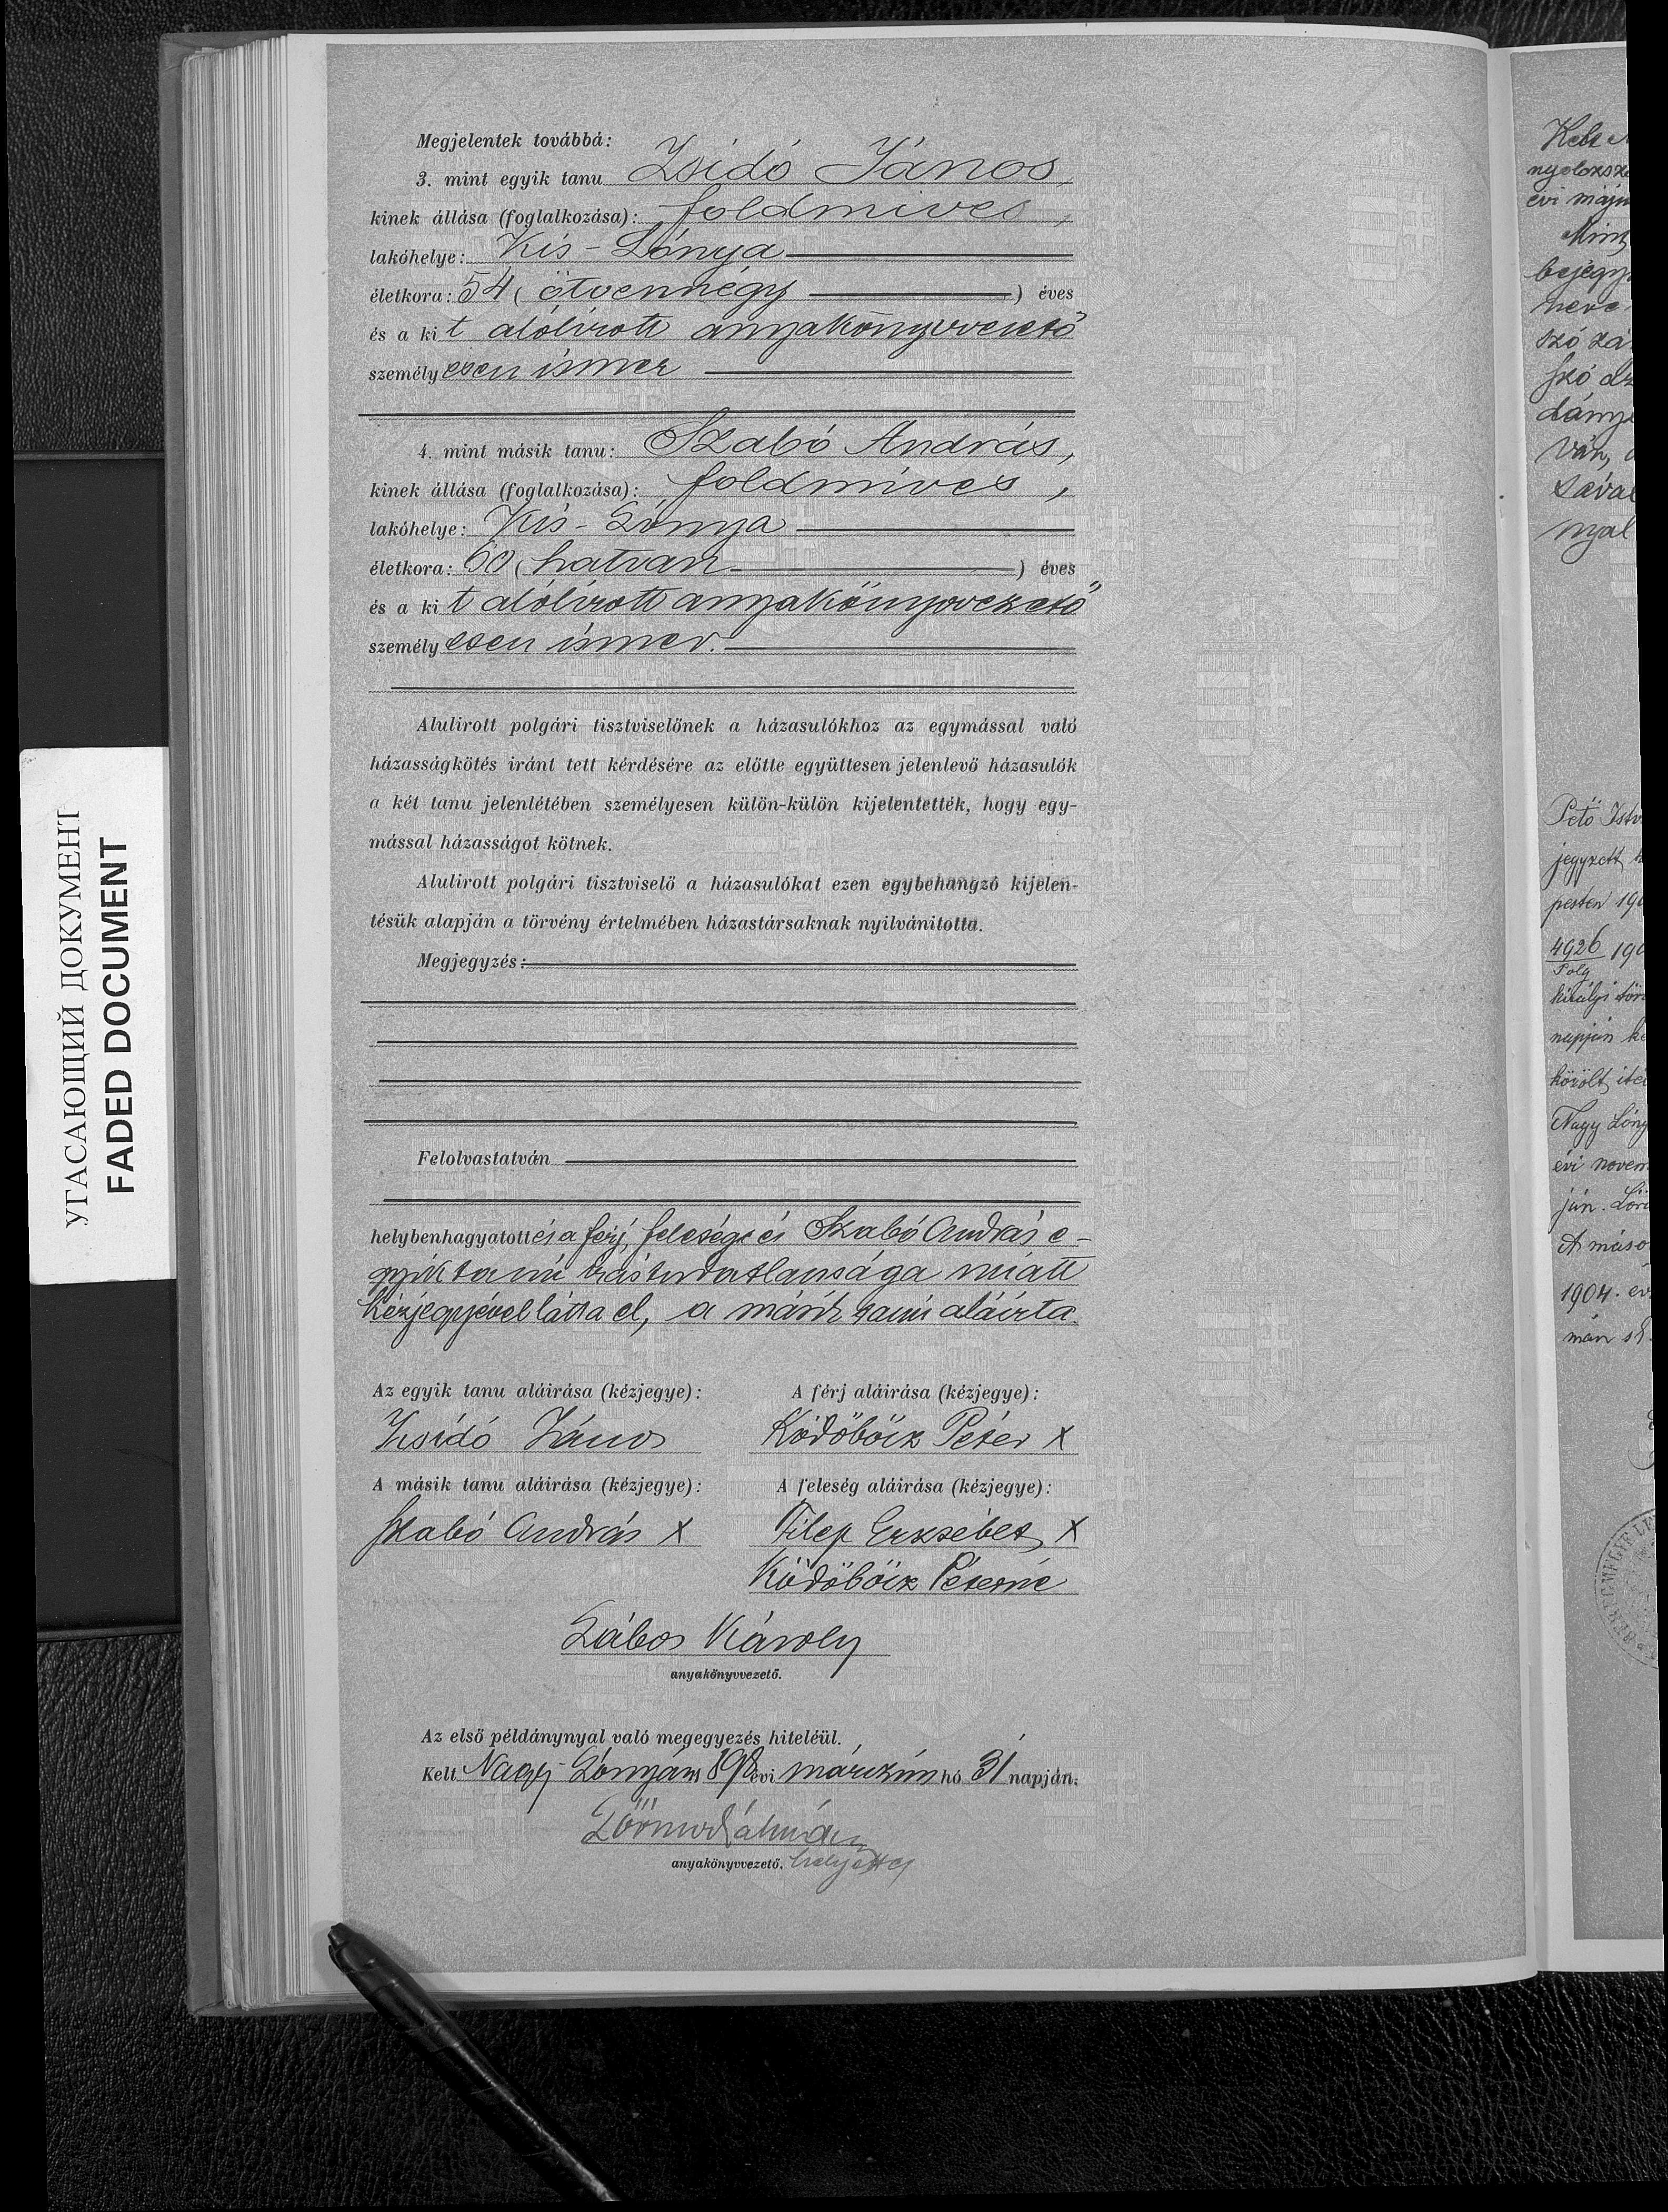 Megjelentek továbbá:
3. mint egyik tanu Zsidó János,
kinek állása (foglalkozása): földmives,
lakóhelye: Kis-Lónya
életkora: 54 (ötvennégy) éves
és a kit alólirott anyakönyvvezető
személyesen ismer
4. mint másik tanu: Szabó András,
kinek állása (foglalkozása): földmives,
lakóhelye: Kis-Lónya
életkora: 60 (hatvan) éves
és a kit alólirott anyakönyvvezető
személyesen ismer.
Alulirott polgári tisztviselőnek a házasulókhoz az egymással való
házasságkötés iránt tett kérdésére az előtte együttesen jelenlevő házasulók
a két tanu jelenlétében személyesen külön-külön kijelentették, hogy egy-
mással házasságot kötnek.
Alulirott polgári tisztviselő a házasulókat ezen egybehangzó kijelen-
tésük alapján a törvény értelmében házastársaknak nyilvánitotta.
Megjegyzés:
Felolvastatván
helybenhagyatott és a férj, felesége és Szabó András e-
gyik tanu irástudatlansága miatt
kézjegyével látta el, a másik tanu aláirta.
Az egyik tanu aláirása (kézjegye): A férj aláirása (kézjegye):
Zsidó János Ködöböcz Péter X
A másik tanu aláirása (kézjegye): A feleség aláirása (kézjegye):
Szabó András X Filep Erzsébet X
Ködöböcz Péterné
Lábos Károly
anyakönyvvezető.
Az első példánynyal való megegyezés hiteléül.
Kelt Nagy-Lónyán 898 évi márczius hó 31 napján.
anyakönyvvezető. helyettes
УГАСАЮЩИЙ ДОКУМЕНТ
FADED DOCUMENT
Kelt
évi
Mint
bejegy
neve
szó
nyal
Pető Istv
jegyzett
pesten 190
4926 190
Polg
királyi
napján
közölt
Nagy Lóny
évi novem
ján.
A máso
1904. év